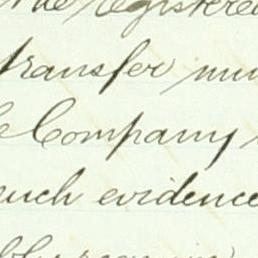 the registered
transfer mu
Company
such evidence